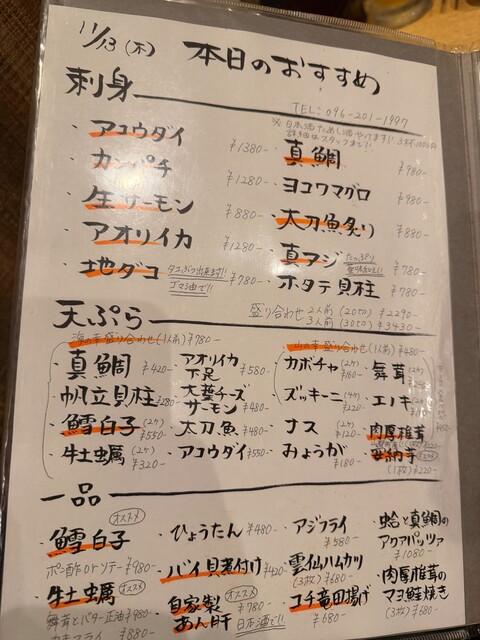 11/13(木) 本日のおすすめ
刺身
TEL: 096-201-1997
・アコウダイ ¥1380-
・カンパチ ¥1280-
・生サーモン ¥880-
・アオリイカ ¥1280-
・地ダコ ¥780-
ゴマ油で!!
・真鯛 ¥980-
・ヨコワマグロ ¥980-
・太刀魚炙り ¥880-
・真アジ ¥780-
・ホタテ貝柱 ¥780-
盛り合わせ 2人前 ¥2290-
3人前 ¥3430-
天ぷら
海の幸盛り合わせ(1人前) ¥780-
・真鯛 ¥420-
・帆立貝柱 ¥280-
・鱈白子 (2ケ) ¥530-
・牡蠣 (2ケ) ¥320-
・アオリイカ下足 ¥580-
・大葉チーズサーモン ¥480-
・太刀魚 ¥480-
・アコウダイ ¥550-
山の幸盛り合わせ(1人前) ¥480-
・カボチャ (2ケ) ¥160-
・ズッキーニ (2ケ) ¥220-
・ナス (2ケ) ¥120-
・みょうが ¥180-
・舞茸
・エリンギ
・肉厚椎茸
(1枚) ¥220-
一品
・鱈白子 オススメ
ポン酢 or ソテー ¥980-
・牡蠣 オススメ
舞茸とバター正油 ¥980-
カキフライ ¥880-
・ひょうたん ¥480-
・バイ貝煮付け ¥420-
・自家製あん肝 オススメ ¥780-
日本酒で!!
・アジフライ ¥580-
・雲仙ハムカツ (3枚) ¥680-
・コチ竜田揚げ ¥680-
・蛤と真鯛のアクアパッツァ ¥1080-
・肉厚椎茸のマヨ焼き (3枚) ¥680-